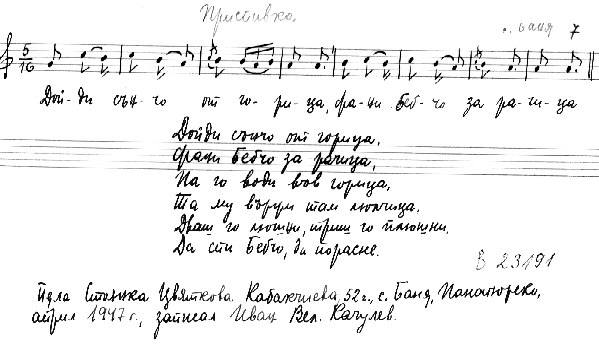 Приспивка.
с. Баня 7
5/16
Дой-ди сън-чо от го-ри-ца, фа-ни Беб-чо за ра-чи-ца
Дойди сънчо от горица,
фани Бебчо за рачица,
Па го води във горица,
Та му въруи там люлчица.
Да спи Бебчо, да порасне.
В 23191
Пяла Стоянка Цвяткова Кабакчиева, 52 г., с. Баня, Панагюрско,
април 1947 г., записал Иван Вел. Качулев.